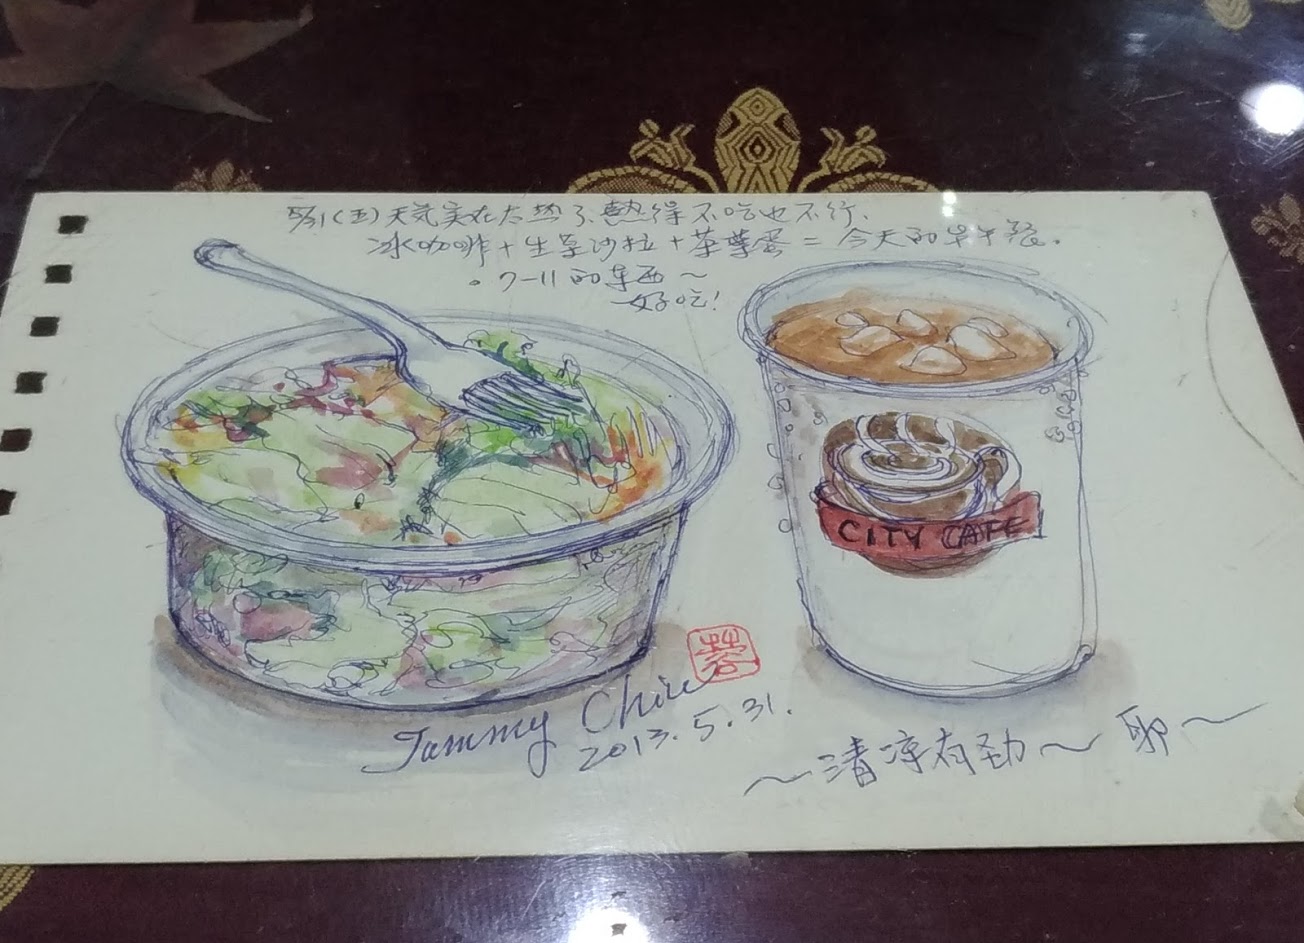 5/31(五)天気实在太热了熱得不吃也不行、
冰咖啡+生菜沙拉+茶葉蛋=今天的早午餐。
。7-11的東西~
好吃!
CITY CAFE
蓉
Tammy Chiu
2013.5.31.
~清凉有劲~耶~